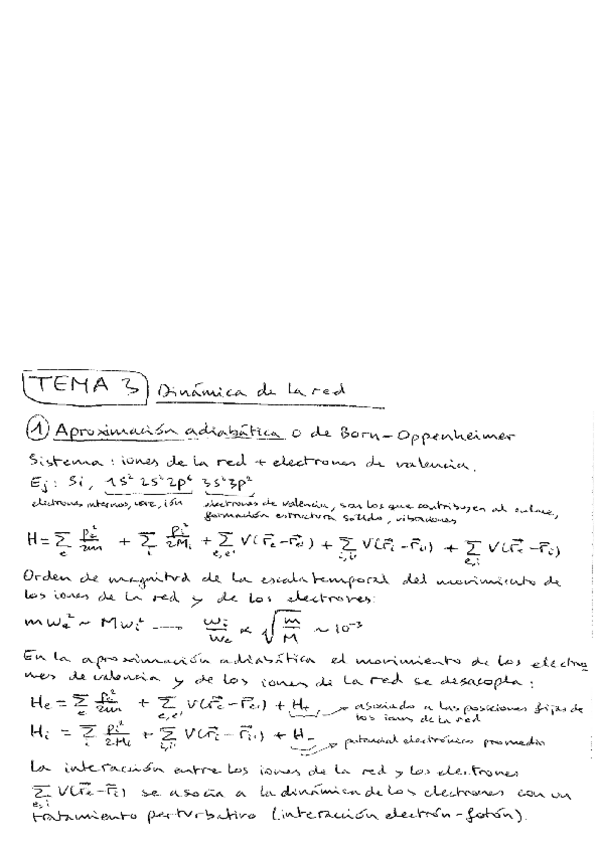 TEMA 3 Dinámica de la red
① Aproximación adiabática o de Born-Oppenheimer
Sistema: iones de la red + electrones de valencia.
Ej: Si, 1s² 2s² 2p⁶ 3s² 3p²
electrones internos, core, ión electrones de valencia, son los que contribuyen al enlace,
formación estructura sólido, vibraciones
H = Σ_e p_e²/2m + Σ_i p_i²/2M_i + Σ_{e,e'} V(r⃗_e - r⃗_e') + Σ_{i,i'} V(r⃗_i - r⃗_i') + Σ_{e,i} V(r⃗_e - r⃗_i)
Orden de magnitud de la escala temporal del movimiento de
los iones de la red y de los electrones:
m w_e² ~ M w_i² ---→ w_i/w_e ∝ √(m/M) ~ 10⁻³
En la aproximación adiabática el movimiento de los electro
nes de valencia y de los iones de la red se desacopla:
H_e = Σ_e p_e²/2m + Σ_{e,e'} V(r⃗_e - r⃗_e') + H₊ → asociado a las posiciones fijas de
los iones de la red
H_i = Σ_i p_i²/2M_i + Σ_{i,i'} V(r⃗_i - r⃗_i') + H₋ → potencial electrónico promedio
La interacción entre los iones de la red y los electrones
Σ_{e,i} V(r⃗_e - r⃗_i) se asocia a la dinámica de los electrones con un
tratamiento perturbativo (interacción electrón-fotón).